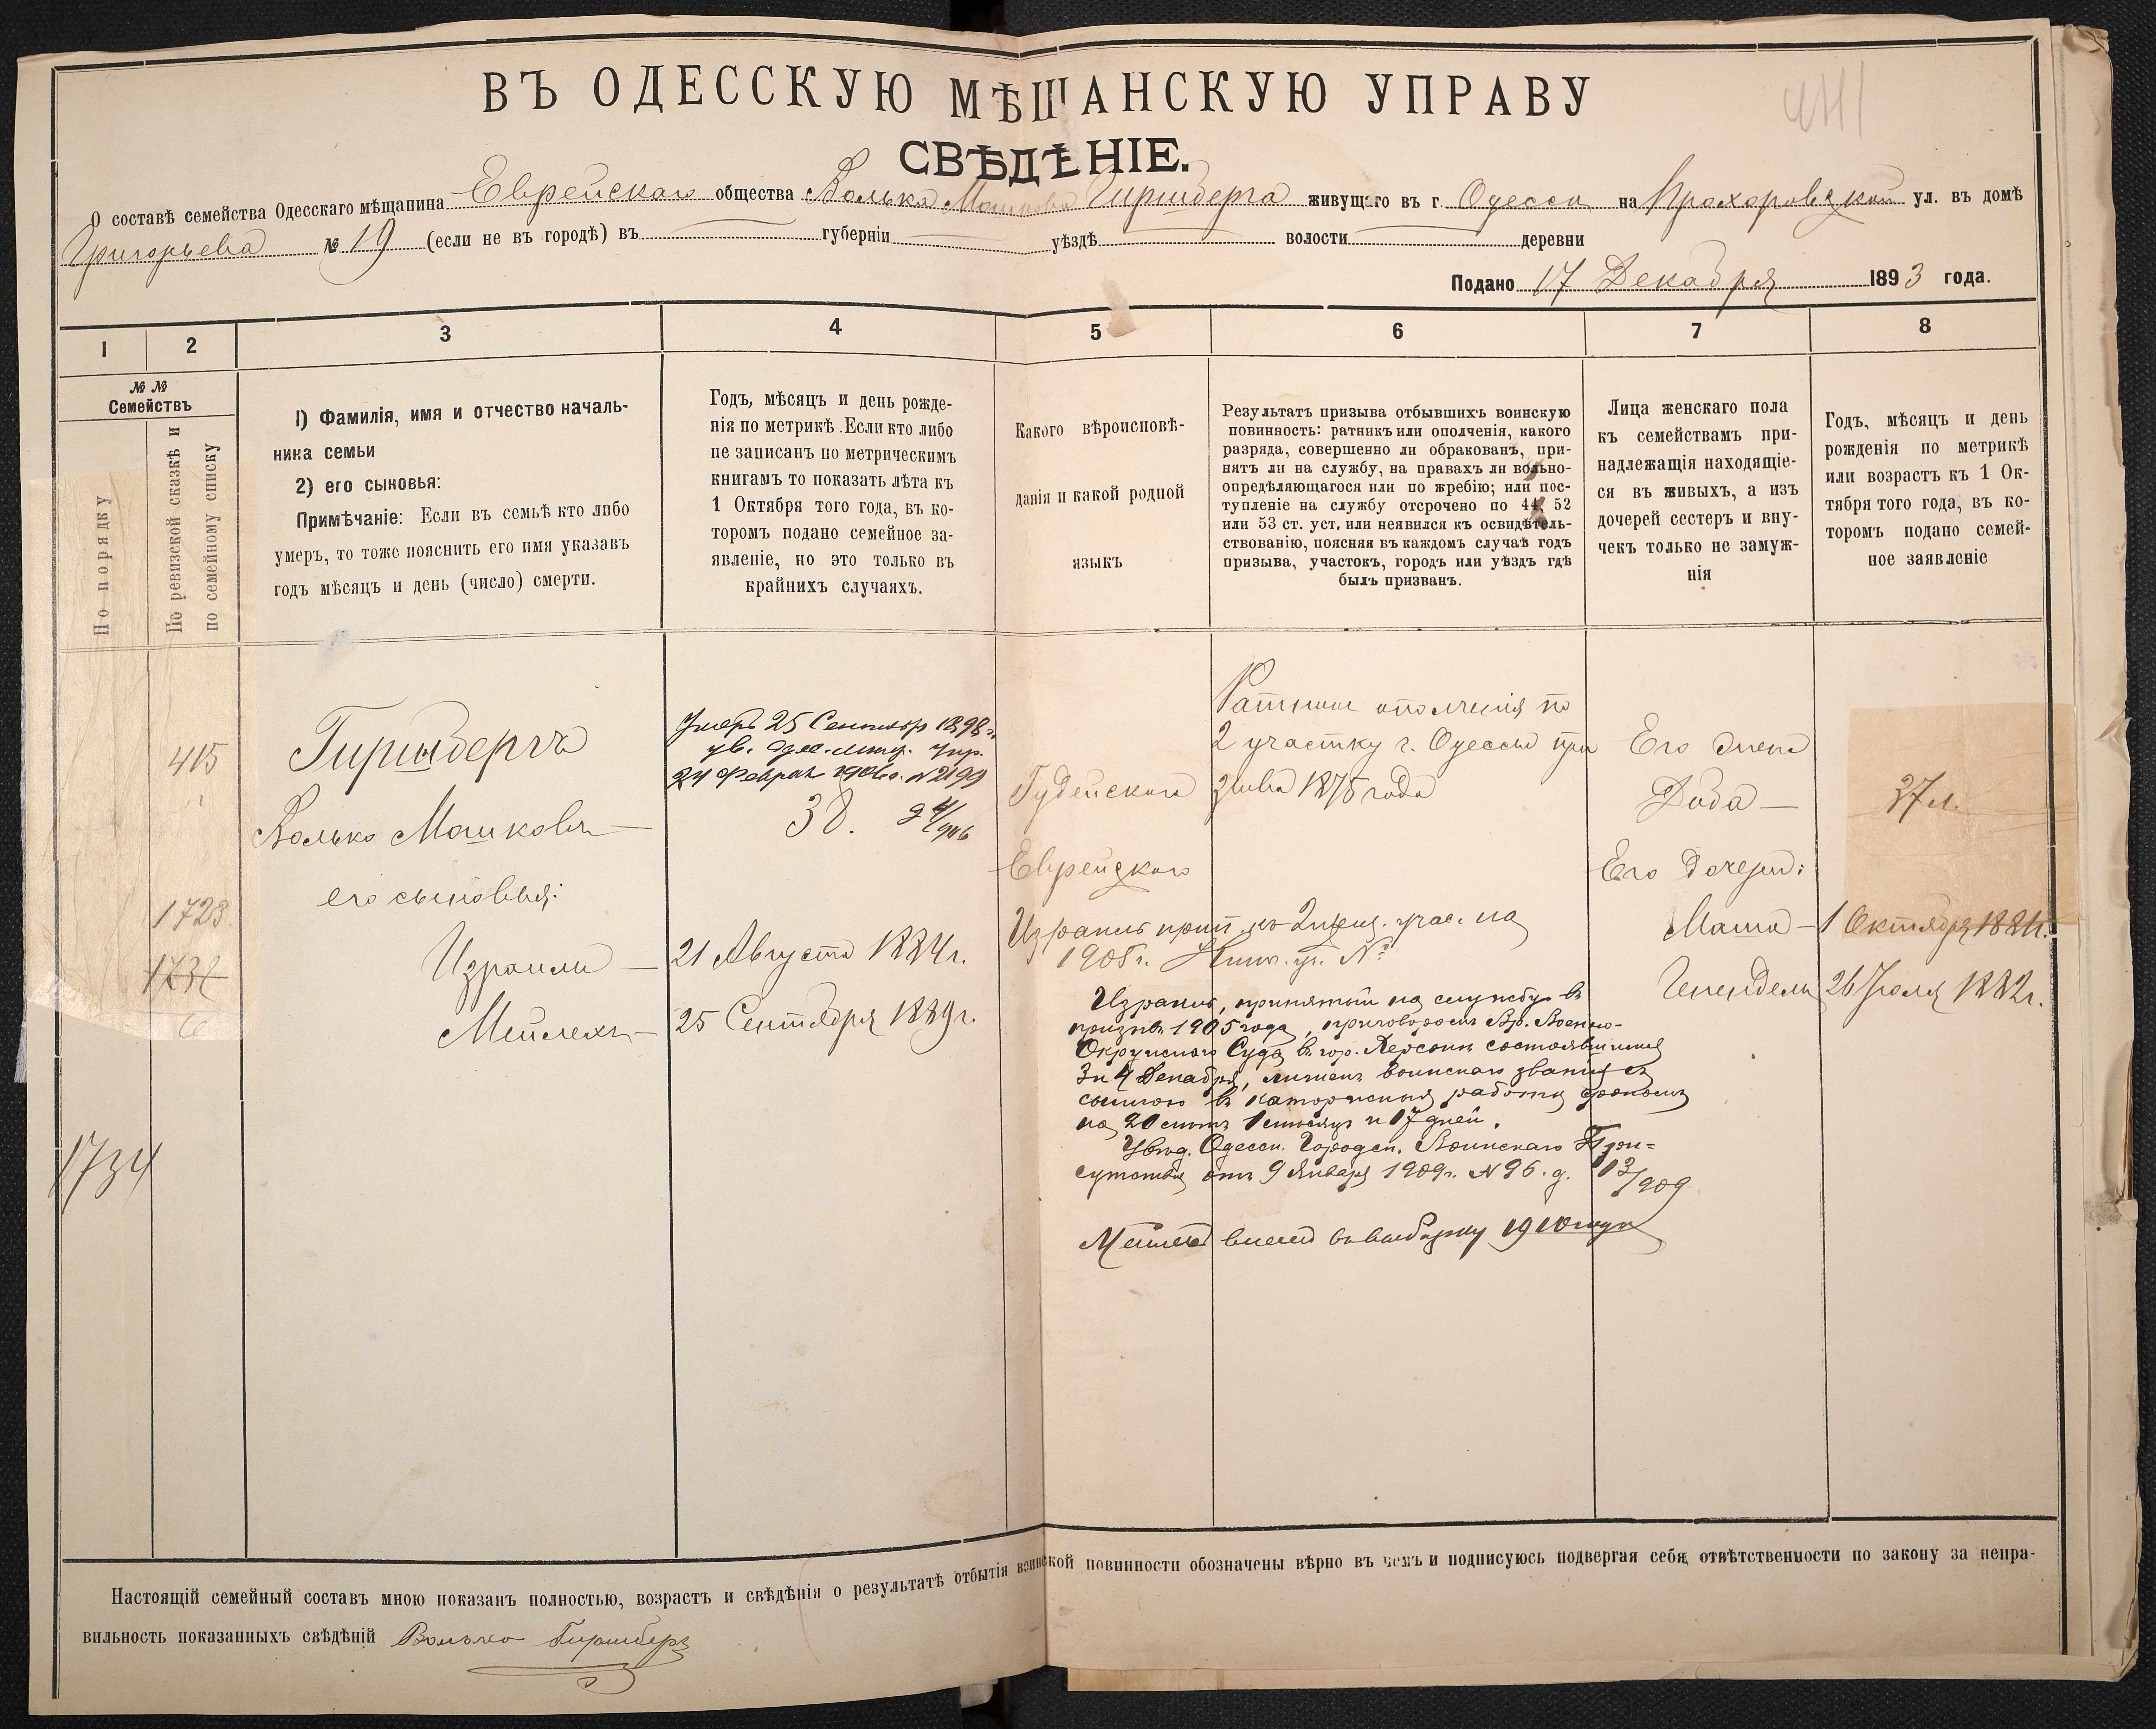 ВЪ ОДЕССКУЮ МѢЩАНСКУЮ УПРАВУ
СВѢДѢНІЕ.
О составѣ семейства Одесскаго мѣщанина Еврейскаго общества Волька Мошкова Гиршберга живущаго въ г. Одесса на Прохоровской ул. въ домѣ
Григорьева № 19 (если не въ городѣ) въ губерніи уѣздѣ волости деревни
Подано 17 Декабря 1893 года.
1 2 3 4 5 6 7 8
№ №
Семействъ
По порядку
По ревизской сказкѣ и
по семейному списку
1) Фамилія, имя и отчество началь-
ника семьи
2) его сыновья:
Примѣчаніе: Если въ семьѣ кто либо
умеръ, то тоже пояснить его имя указавъ
годъ мѣсяцъ и день (число) смерти.
Годъ, мѣсяцъ и день рожде-
нія по метрикѣ. Если кто либо
не записанъ по метрическимъ
книгамъ то показать лѣта къ
1 Октября того года, въ ко-
торомъ подано семейное за-
явленіе, но это только въ
крайнихъ случаяхъ.
Какого вѣроисповѣ-
данія и какой родной
языкъ
Результатъ призыва отбывшихъ воинскую
повинность: ратникъ или ополченія, какого
разряда, совершенно ли обракованъ, при-
нятъ ли на службу, на правахъ ли вольно-
опредѣляющагося или по жребію; или пос-
тупленіе на службу отсрочено по 44, 52
или 53 ст. уст. или неявился къ освидѣтель-
ствованію, поясняя въ каждомъ случаѣ годъ
призыва, участокъ, городъ или уѣздъ гдѣ
былъ призванъ.
Лица женскаго пола
къ семействамъ при-
надлежащія находящіе-
ся въ живыхъ, а изъ
дочерей сестеръ и вну-
чекъ только не замуж-
нія
Годъ, мѣсяцъ и день
рожденія по метрикѣ
или возрастъ къ 1 Ок-
тября того года, въ ко-
торомъ подано семей-
ное заявленіе
415
1723
1734
Гиршбергъ
Волько Мошковъ —
его сыновья:
Израиль —
Мейлехъ —
Умеръ 25 Сентября 1898 г.
ув. Одес. мѣщ. Упр.
24 Февраля 1906 г. № 2199
38.
21 Августа 1884 г.
25 Сентября 1889 г.
Іудейскаго
Еврейскаго
Ратникъ ополченія по
2 участку г. Одессы при
зыва 1875 года
Израиль прип. къ 2 приз. учас. на
1905 г. №
Израиль, принятый на службу въ
призывъ 1905 года, приговоромъ Вр. Военно-
Окружнаго Суда въ гор. Херсонѣ состоявшимся
3 и 4 Декабря, лишенъ воинскаго званія съ
ссылкою въ каторжныя работы срокомъ
на 20 лѣтъ 1 мѣсяцъ и 17 дней.
Увѣд. Одесск. Городск. Воинскаго При-
сутствія отъ 9 Января 1909 г. № 96. д. 13/909
Мейлехъ внесенъ въ выборку 1910 года
Его жена
Доба —
Его дочери:
Маша —
Генендель
37 л.
1 Октября 1881 г.
26 Іюля 1882 г.
Настоящій семейный составъ мною показанъ полностью, возрастъ и свѣдѣнія о результатѣ отбытія воинской повинности обозначены вѣрно въ чемъ и подписуюсь подвергая себя отвѣтственности по закону за непра-
вильность показанныхъ свѣдѣній Волько Гиршберг